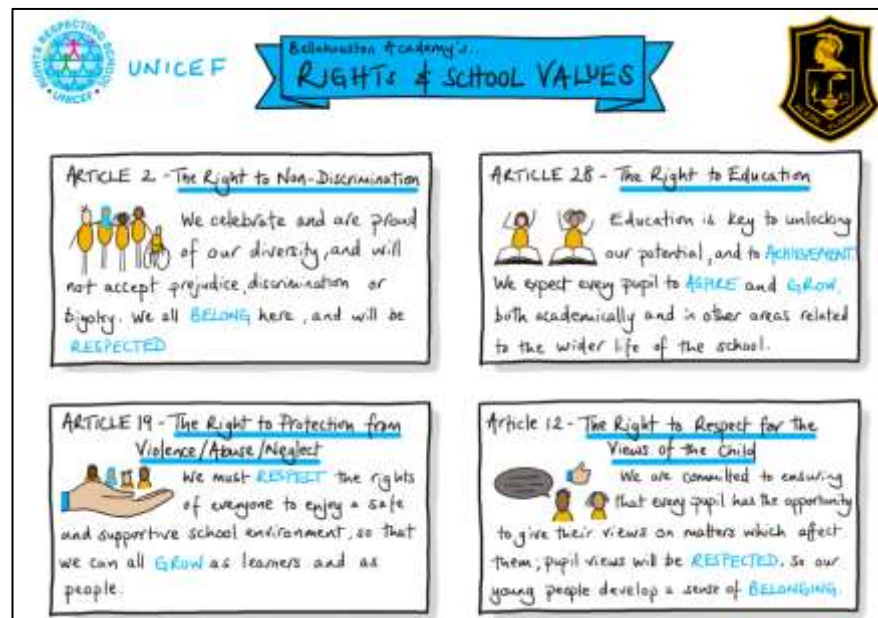 RIGHTS RESPECTING SCHOOLS
UNICEF
UNICEF
Bellahouston Academy's...
RIGHTS & SCHOOL VALUES
ARTICLE 2 - The Right to Non-Discrimination
We celebrate and are proud
of our diversity, and will
not accept prejudice, discrimination or
bigotry. We all BELONG here, and will be
RESPECTED
ARTICLE 28 - The Right to Education
Education is key to unlocking
our potential, and to ACHIEVEMENT.
We expect every pupil to ASPIRE and GROW,
both academically and in other areas related
to the wider life of the school.
ARTICLE 19 - The Right to Protection from
Violence/Abuse/Neglect
We must RESPECT the rights
of everyone to enjoy a safe
and supportive school environment, so that
we can all GROW as learners and as
people.
Article 12 - The Right to Respect for the
Views of the Child
We are committed to ensuring
that every pupil has the opportunity
to give their views on matters which affect
them; pupil views will be RESPECTED. So our
young people develop a sense of BELONGING.